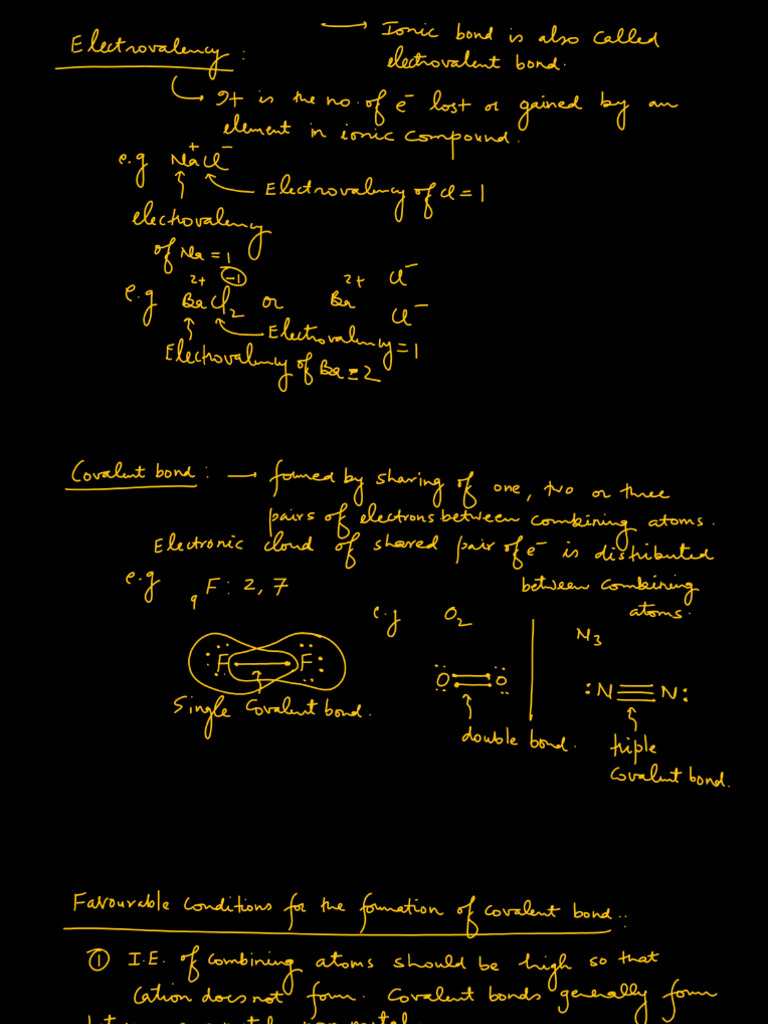 Electrovalency : → Ionic bond is also called
electrovalent bond.
→ It is the no. of e⁻ lost or gained by an
element in ionic compound.
e.g Na⁺Cl⁻
Electrovalency of Cl = 1
electrovalency
of Na = 1
2+ -1
e.g BaCl₂ or Ba²⁺ Cl⁻
Cl⁻
Electrovalency = 1
Electrovalency of Ba = 2
Covalent bond : → formed by sharing of one, two or three
pairs of electrons between combining atoms.
Electronic cloud of shared pair of e⁻ is distributed
between combining
atoms.
e.g ₉F : 2, 7
e.g O₂
N₃
F F
O O
:N≡N:
Single Covalent bond.
double bond.
triple
covalent bond.
Favourable Conditions for the formation of covalent bond :
① I.E. of combining atoms should be high so that
Cation does not form. Covalent bonds generally form